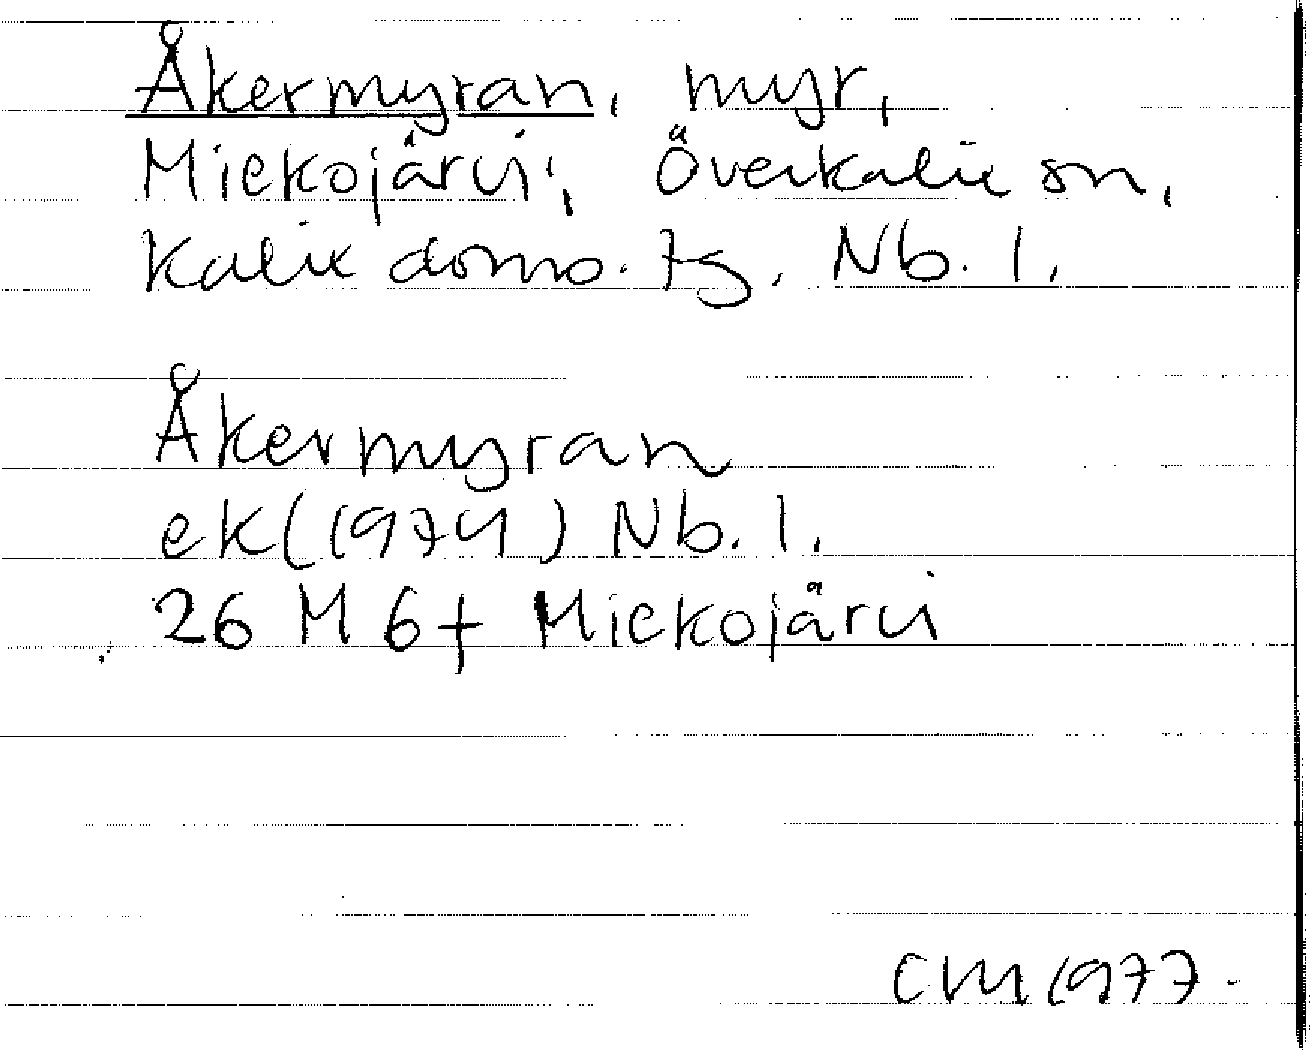 Åkermyran, myr,
Miekojärvi, Överkalix sn,
Kalix doms. tg, Nb. l.
Åkermyran
ek (1974) Nb. l.
26 M 6 f Miekojärvi
CM 1977.